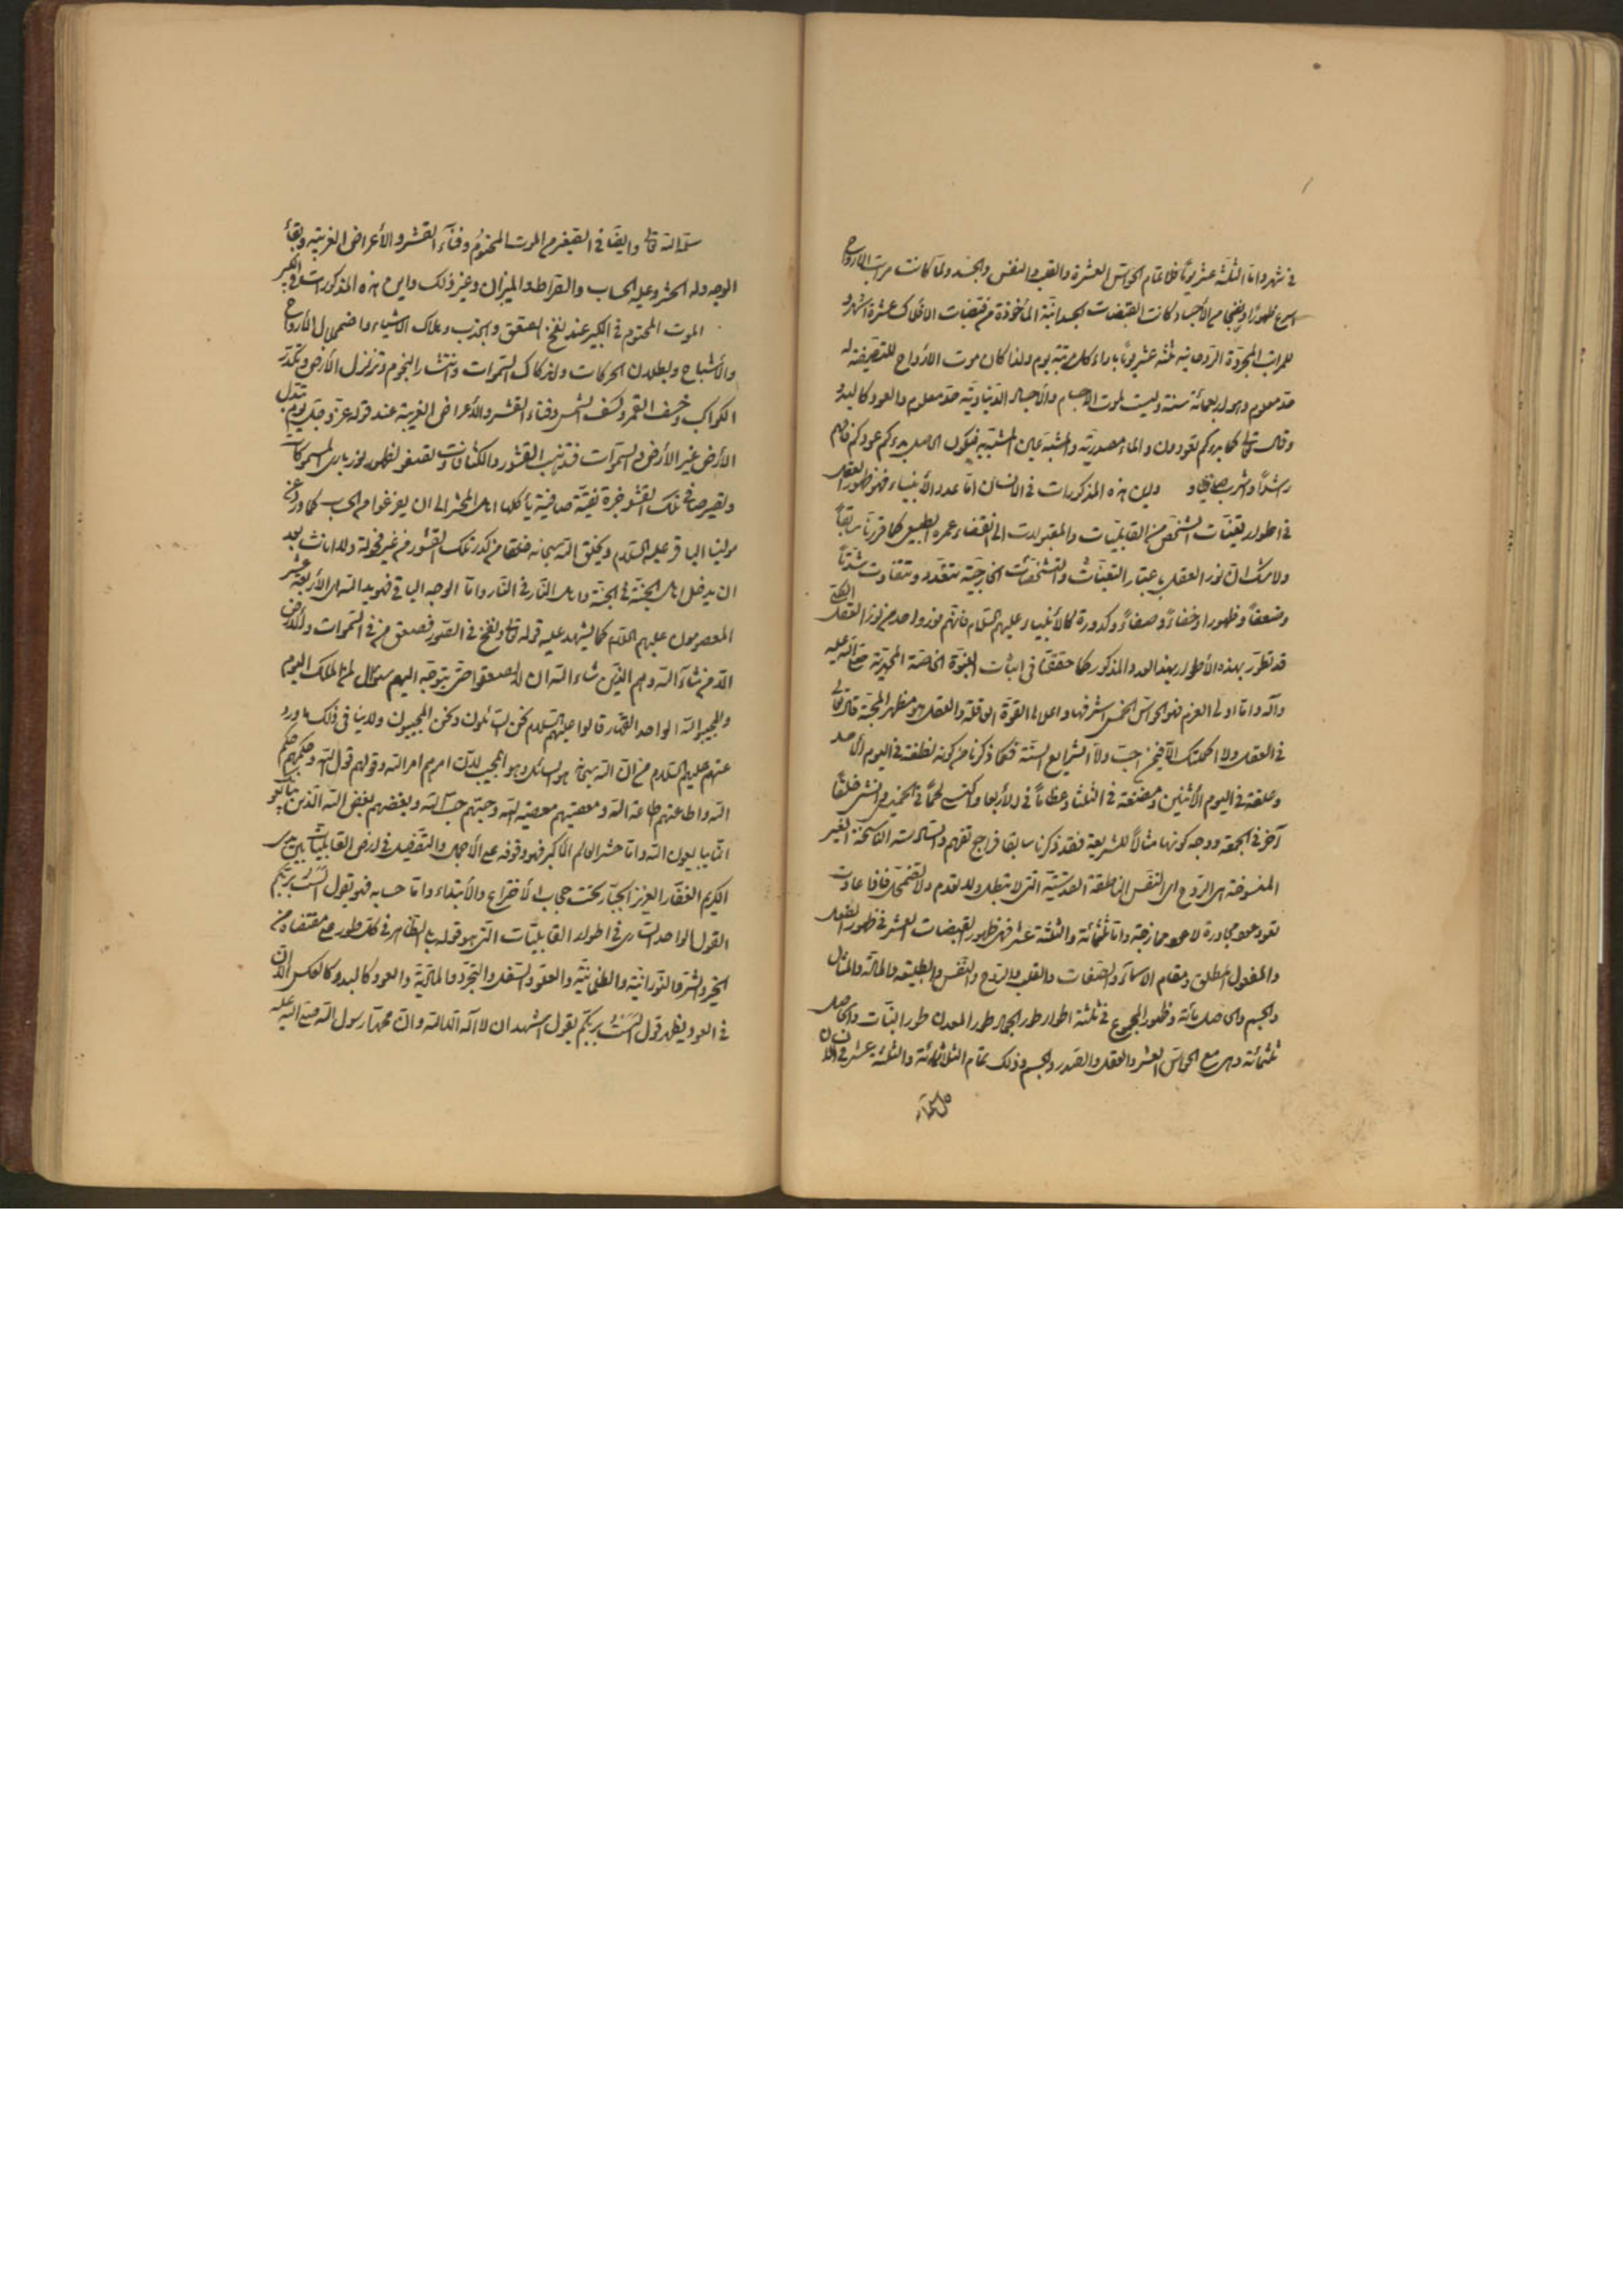 في شهر واما الثلثة عشر يوماً فلتمام الحواس العشرة والقلب والنفس والجسد ولما كانت مراتب الأرواح
اسرع ظهوراً ونضجا من الأجساد كانت القبضات الجسدانية المأخوذة من قبضات الافلاك عشرة اشهر و
للمراتب المجردة الروحانية ثلثة عشر يوماً بازاء كل مرتبة يوم ولذا كان موت الارواح للتصفية له
حد معلوم وهو اربعمائة سنة وليست لموت الاجسام والأجساد الدنياوية حد معلوم والعود كالبدو
وقال تعالى كما بدءكم تعودون والماء مصدرية والمشبه عين المشبه به فيكون الحاصل بدءكم عودكم فافهم
رشداً واشرب صافياً و واين هذه المذكورات في الانسان اما عدد الأنبياء فهو ظهور العقل
في اطوار تعينات الشخص من القابليات والمقبولات الى انقضاء عمره الطبيعي كما قررنا سابقاً
ولا شك ان نور العقل باعتبار التعينات والتشخصات الخارجية يتعدد ويتفاوت شدتاً
وضعفاً وظهورا وخفاءً وصفاءً وكدورة كالأنبياء عليهم السلام فانهم نور واحد من نور العقل الكلي
قد تطور بهذه الأطوار بهذا العدد المذكور كما حققنا في اثبات النبوة الخاصة المحمدية صلى الله عليه
وآله واما اولى العزم فهو الحواس الخمس اشرفها واعلاها القوة العاقلة والعقل هو مظهر المحبة قال تعالى
في العقل ولا اكملتك الا فيمن احب واما الشرايع الستة فكما ذكرنا من كونه نطفة في اليوم الأحد
وعلقة في اليوم الأثنين ومضغة في الثلثا وعظاماً في الأربعا وكسى لحماً في الخميس وانشئ خلقاً
آخر في الجمعة ووجه كونها مثالاً للشريعة فقد ذكرنا سابقا فراجع تفهم والسادسة الناسخة الغير
المنسوخة هي الروح اي النفس الناطقة القدسية التي لا تبطل ولا تعدم ولا تضمحل فاذا عادت
تعود عود مجاورة لا عود ممازجة واما ثلثمائة والثلثة عشر فهو ظهور القبضات العشر في ظهور الفعل
والمفعول المطلق ومقام الاسماء والصفات والقلب والروح والنفس والطبيعة والمادة والمثال
والجسم والحاصل مائة وظهور المجموع في ثلثة اطوار طور الجماد طور المعدن طور النبات والحاصل
ثلثمائة وهي مع الحواس العشر والعقل والصدر والجسم وذلك تمام الثلاثمائة والثلثة عشر في الانسان
ان شاء
الله تعالى وايضا في الصغير الموت المختوم وفناء القشر والأعراض الغريبة وبقاء
الوجه وله الحشر وعليه الحساب والصراط والميزان وغير ذلك واين هذه المذكورات في الكبير
الموت المختوم في الكبير عند نفخ الصعق والجذب وهلاك الاشياء واضمحلال الأرواح
والأشباح وبطلان الحركات واندكاك السموات وانتثار النجوم وتزلزل الأرض وتكدر
الكواكب وخسف القمر وكسف الشمس وفناء القشر والأعراض الغريبة عند قوله عز وجل يوم تبدل
الأرض غير الأرض والسموات فتذهب القشور والكثافات وتصفو لظهور نور بارئ المسموكات
وتصير صافي تلك القشور خبزة نقية صافية يأكلها اهل المحشر الى ان يفرغوا من الحساب كما ورد عن
مولينا الباقر عليه السلام ويخلق الله سبحانه خلقا من كدر تلك القشور من غير فحولة ولا اناث بعد
ان يدخل اهل الجنة في الجنة واهل النار في النار واما الوجه الباقي فهو يد الله اي الأربعة عشر
المعصومون عليهم السلام كما يشهد عليه قوله تعالى ونفخ في الصور فصعق من في السموات والأرض
الا من شاء الله وهم الذين شاء الله ان لا يصعقوا حتى يتوجه اليهم سؤال لمن الملك اليوم
والمجيبوا لله الواحد القهار قالوا عليهم السلام نحن السائلون ونحن المجيبون ولا ينافي ذلك ما ورد
عنهم عليهم السلام من ان الله سبحانه هو السائل وهو المجيب لان امرهم امر الله وقولهم قول الله وحكمهم حكم
الله واطاعتهم اطاعة الله ومعصيتهم معصية الله وحبهم حب الله وبغضهم بغض الله ان الذين يبايعونك
انما يبايعون الله واما حشر العالم الأكبر فهو وقوفه على الأجمال والتفصيل في ارض القابليات بين يدي
الكريم الغفار العزيز الجبار تحت حجاب الأختراع والأبتداء واما حسابه فهو يقول الست بربكم
القول الواحد الساري في اطوار القابليات التي هو قوله بلى الظاهر في كل طور على مقتضاه من
الخير والشر والنورانية والظلمانية والعلو والسفل والتجرد والمادية والعود كالبدو كالعكس الان
في العود يظهر قول الست بربكم بقول اشهد ان لا اله الا الله وان محمدا رسول الله صلى الله عليه